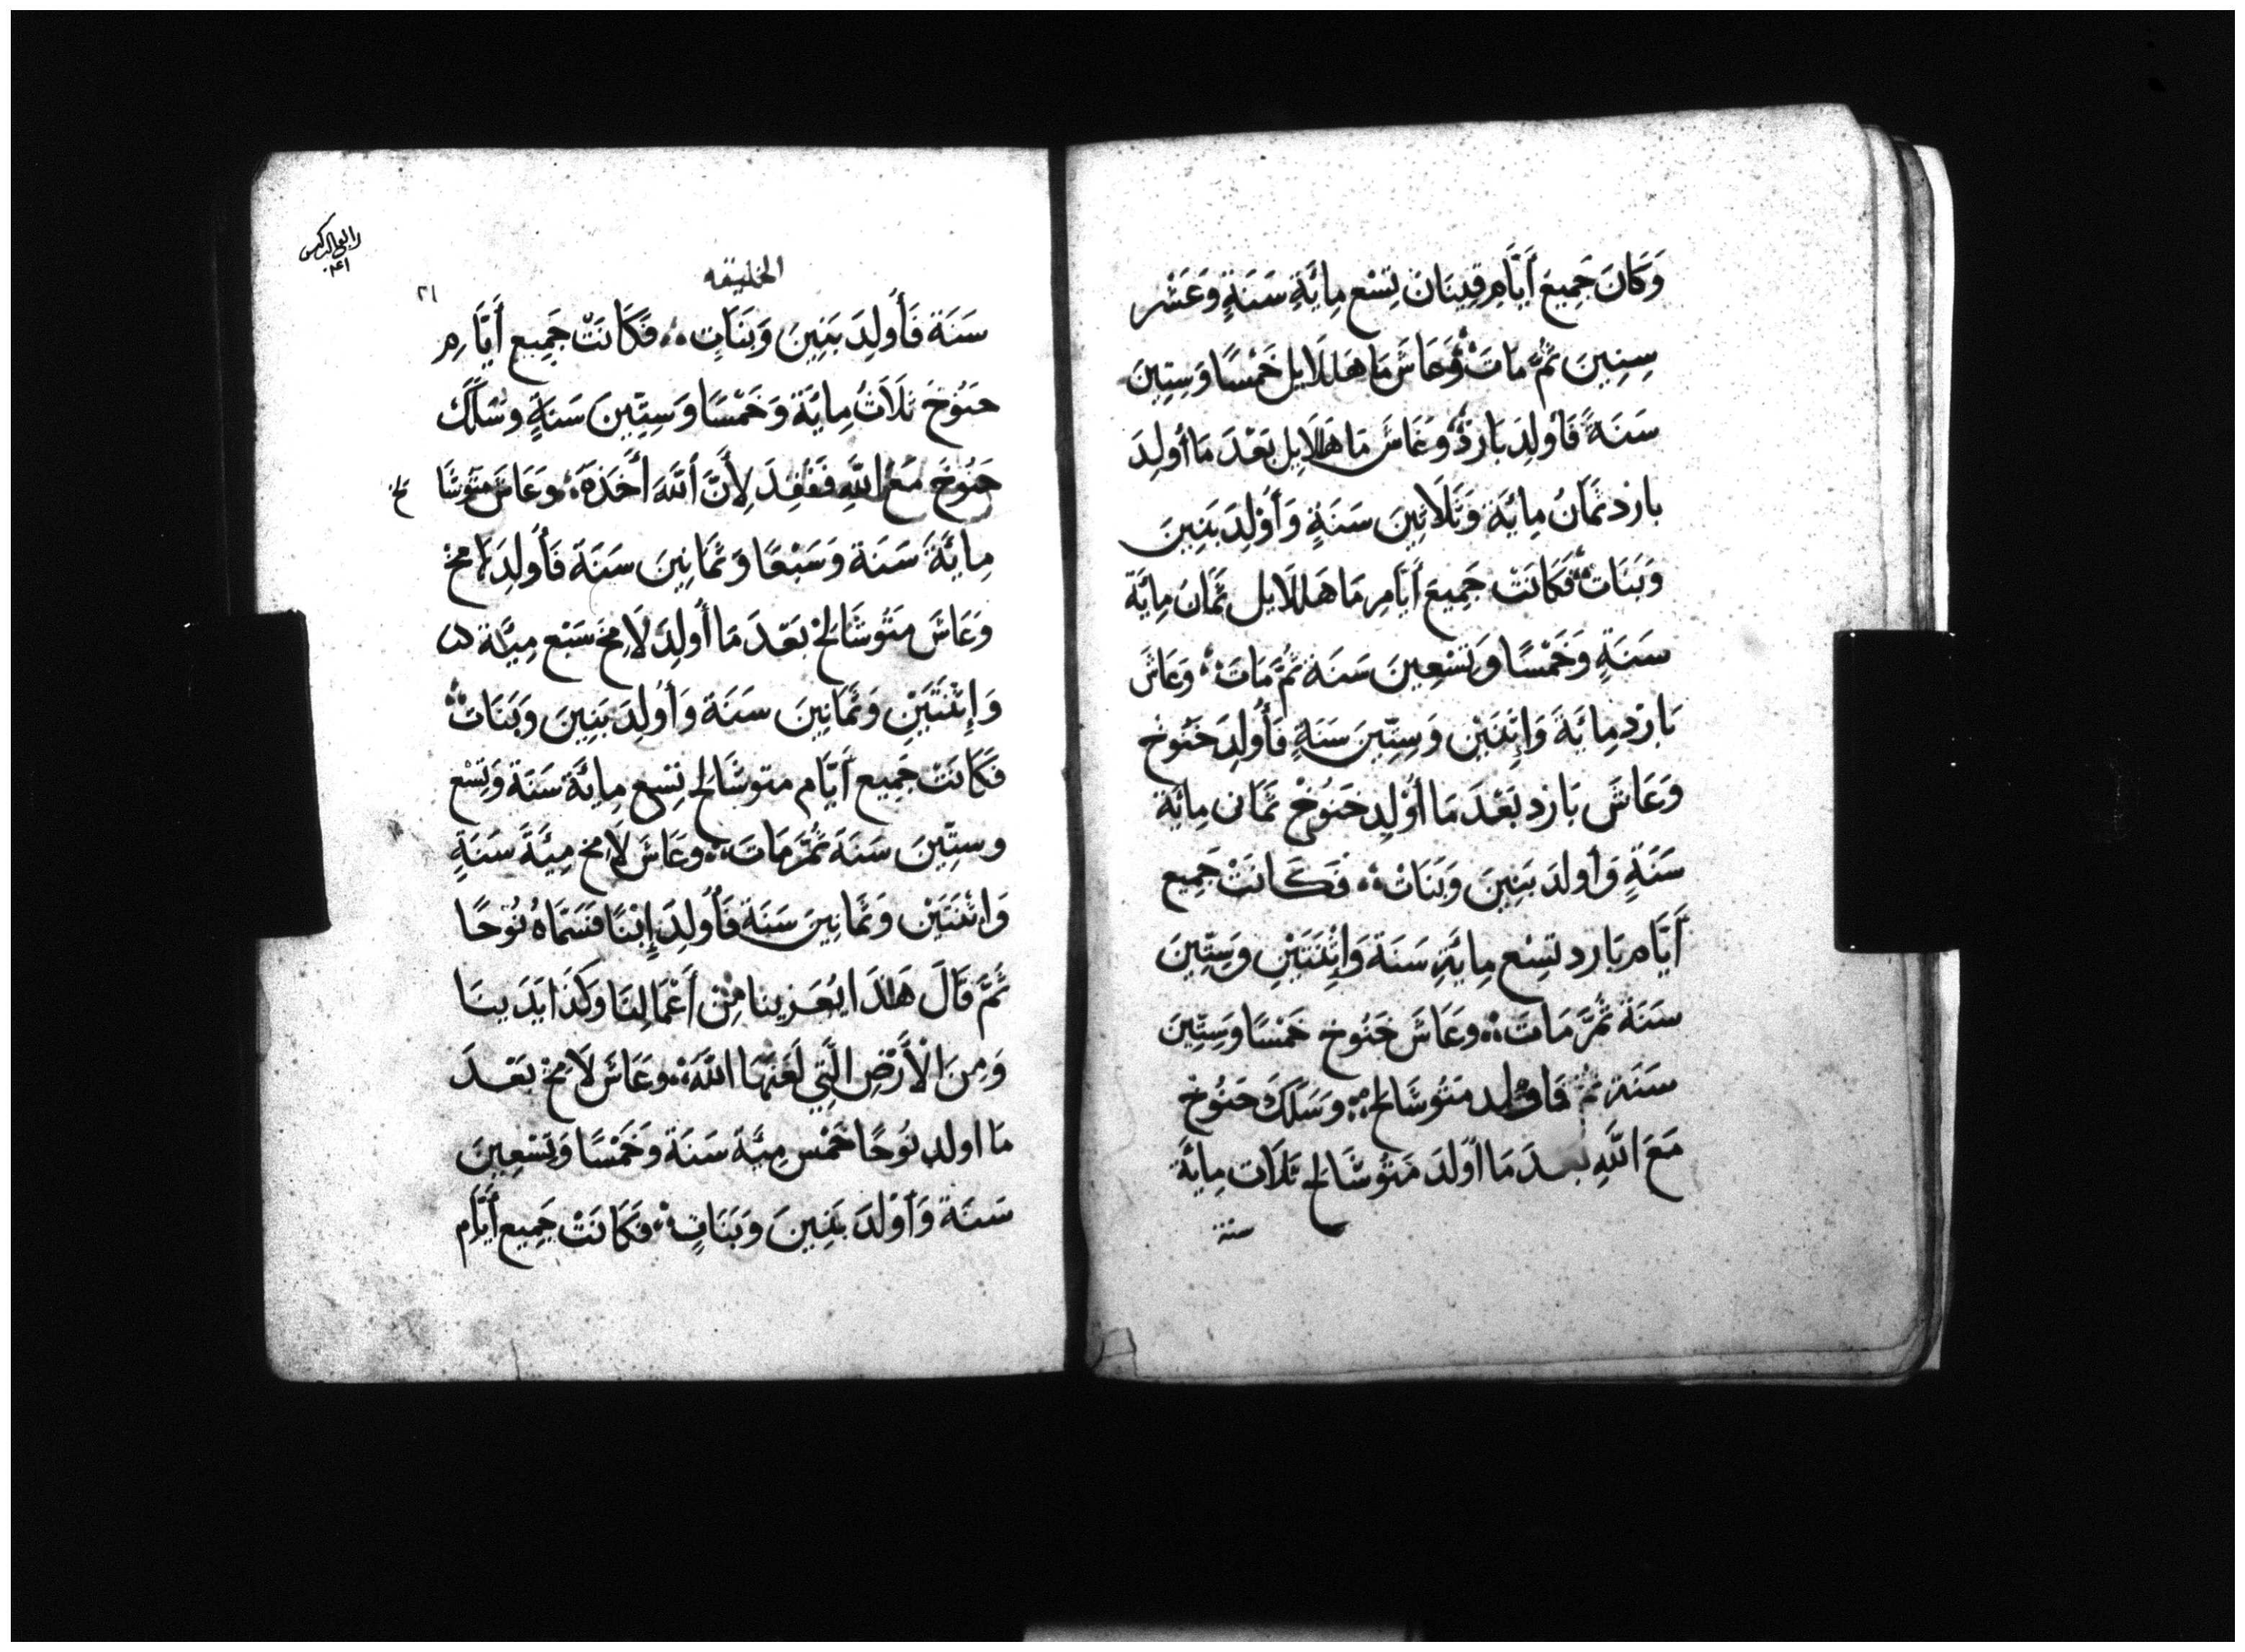 وَكَانَ جَمِيعَ أَيَّامِ قِينَانَ تِسْع مِايَّةِ سَنَةٍ وَعَشْر
سِنِينَ ثُمَّ مَاتَ وَعَاشَ مَاهَلَلَايل خَمْسًا وَسِتِينَ
سَنَةً فَأولِدَ يَارَدْ وَعَاشَ مَاهَلَلَايِل بَعْدَ مَا أُولِدَ
يارد ثمَانُ مِائَيَة وَثَلَاثِينَ سَنَةٍ وَأَوْلِدَ بَنِينَ
وَبَنَات فَكَانَتْ جَمِيعَ أَيَّامِ مَاهَلَلَايل ثَمَانُ مِايَّة
سَنَةٍ وَخَمْسًا وَتِسْعِينَ سَنَة ثُمَّ مَاتَ وَعَاشَ
يَارَد مِايَةَ وَإِثْنَيْنِ وَسِتِّينَ سَنَةٍ فَأُولِدَ خَنُوخ
وَعَاشَ يَارد بَعْدَ مَا أُوْلِد خَنُوخْ ثَمَانى مِايَّة
سَنَةٍ وَأولدَ بَنِينَ وَبَنَاتْ فَكَانَتْ جَمِيع
أَيَّام يَارد تسِْع مِايَّةِ سَنَة وَإِثْنَتَيْنِ وَسِتِّينَ
سَنَة ثُمَّ مَاتَ وَعَاشَ خَنُوخ خَمْسًا وَسِتِّينَ
سَنَة فَاوْلد مَتُوشَالِخ وَسَلَكَ حَنُوخْ
مَعَ اللَّهِ بعدَ مَا أولدَ مَتُوشَالِخ ثَلَاث مِايَّة
سنة
الخليقه
٢١
سَنَة فَأُولِدَ بَنِينَ وَبَنَاتٍ فَكَانَتْ جَمِيع أَيَّامِ
حَنُوْخَ ثَلَاثُ مِايَّة وَخَمْسًا وَسِتِّينَ سَنَةٍ وَسَلَكَ
حَنُوخَ مَعَ اللَّهِ فَفُقِدَ لِأَنَّ اللَّهَ أَخَذَهُ وَعَاشَ مَتُوشَا لخ
مِايَّةَ سَنَة وَسَبْعًا وَثَمَانِينَ سَنَة فَأُولِدَ لَامخ
وَعَاشَ مَتُوشَالِخْ بَعْدَ مَا أُولِدَ لَامِخَ سَبْع مِيَّة
وَإِثْنَتَيْنِ وَثَمَانِينَ سَنَة وَأُولِدَ بَنِينَ وَبَنَاتْ
فَكَانَت جَمِيع أَيَّام متوشَالخ تِسْع مِايَّة سَنَة وَتِسْع
وستِّينَ سَنَة ثُمَّ مَاتَ وعَاشَ لَامخ مِيَّةَ سَنَةٍ
وَاِثْنَتَيْنِ وَثَمَانِينَ سَنَة فَأُولِدَ إِبْنًا فَسَمَّاهُ نُوْحًا
ثُمَّ قَالَ هَذَا يُعَزينا مِنْ أَعْمَالِنَا وَكَذَا يَدَينَا
وَمِنَ الْأَرْضِ الَّتِي لَعَنَهَا اللَّهُ وعَاشَ لَامِخْ بَعْدَ
مَا اولد نُوْحًا خَمْس مِيَّة سَنَة وَخَمْسًا وَتِسْعِينَ
سَنَة وَأَوْلَدَ بَنِينَ وَبَنَاتٍ فَكَانَتْ جَمِيع أَيَّام